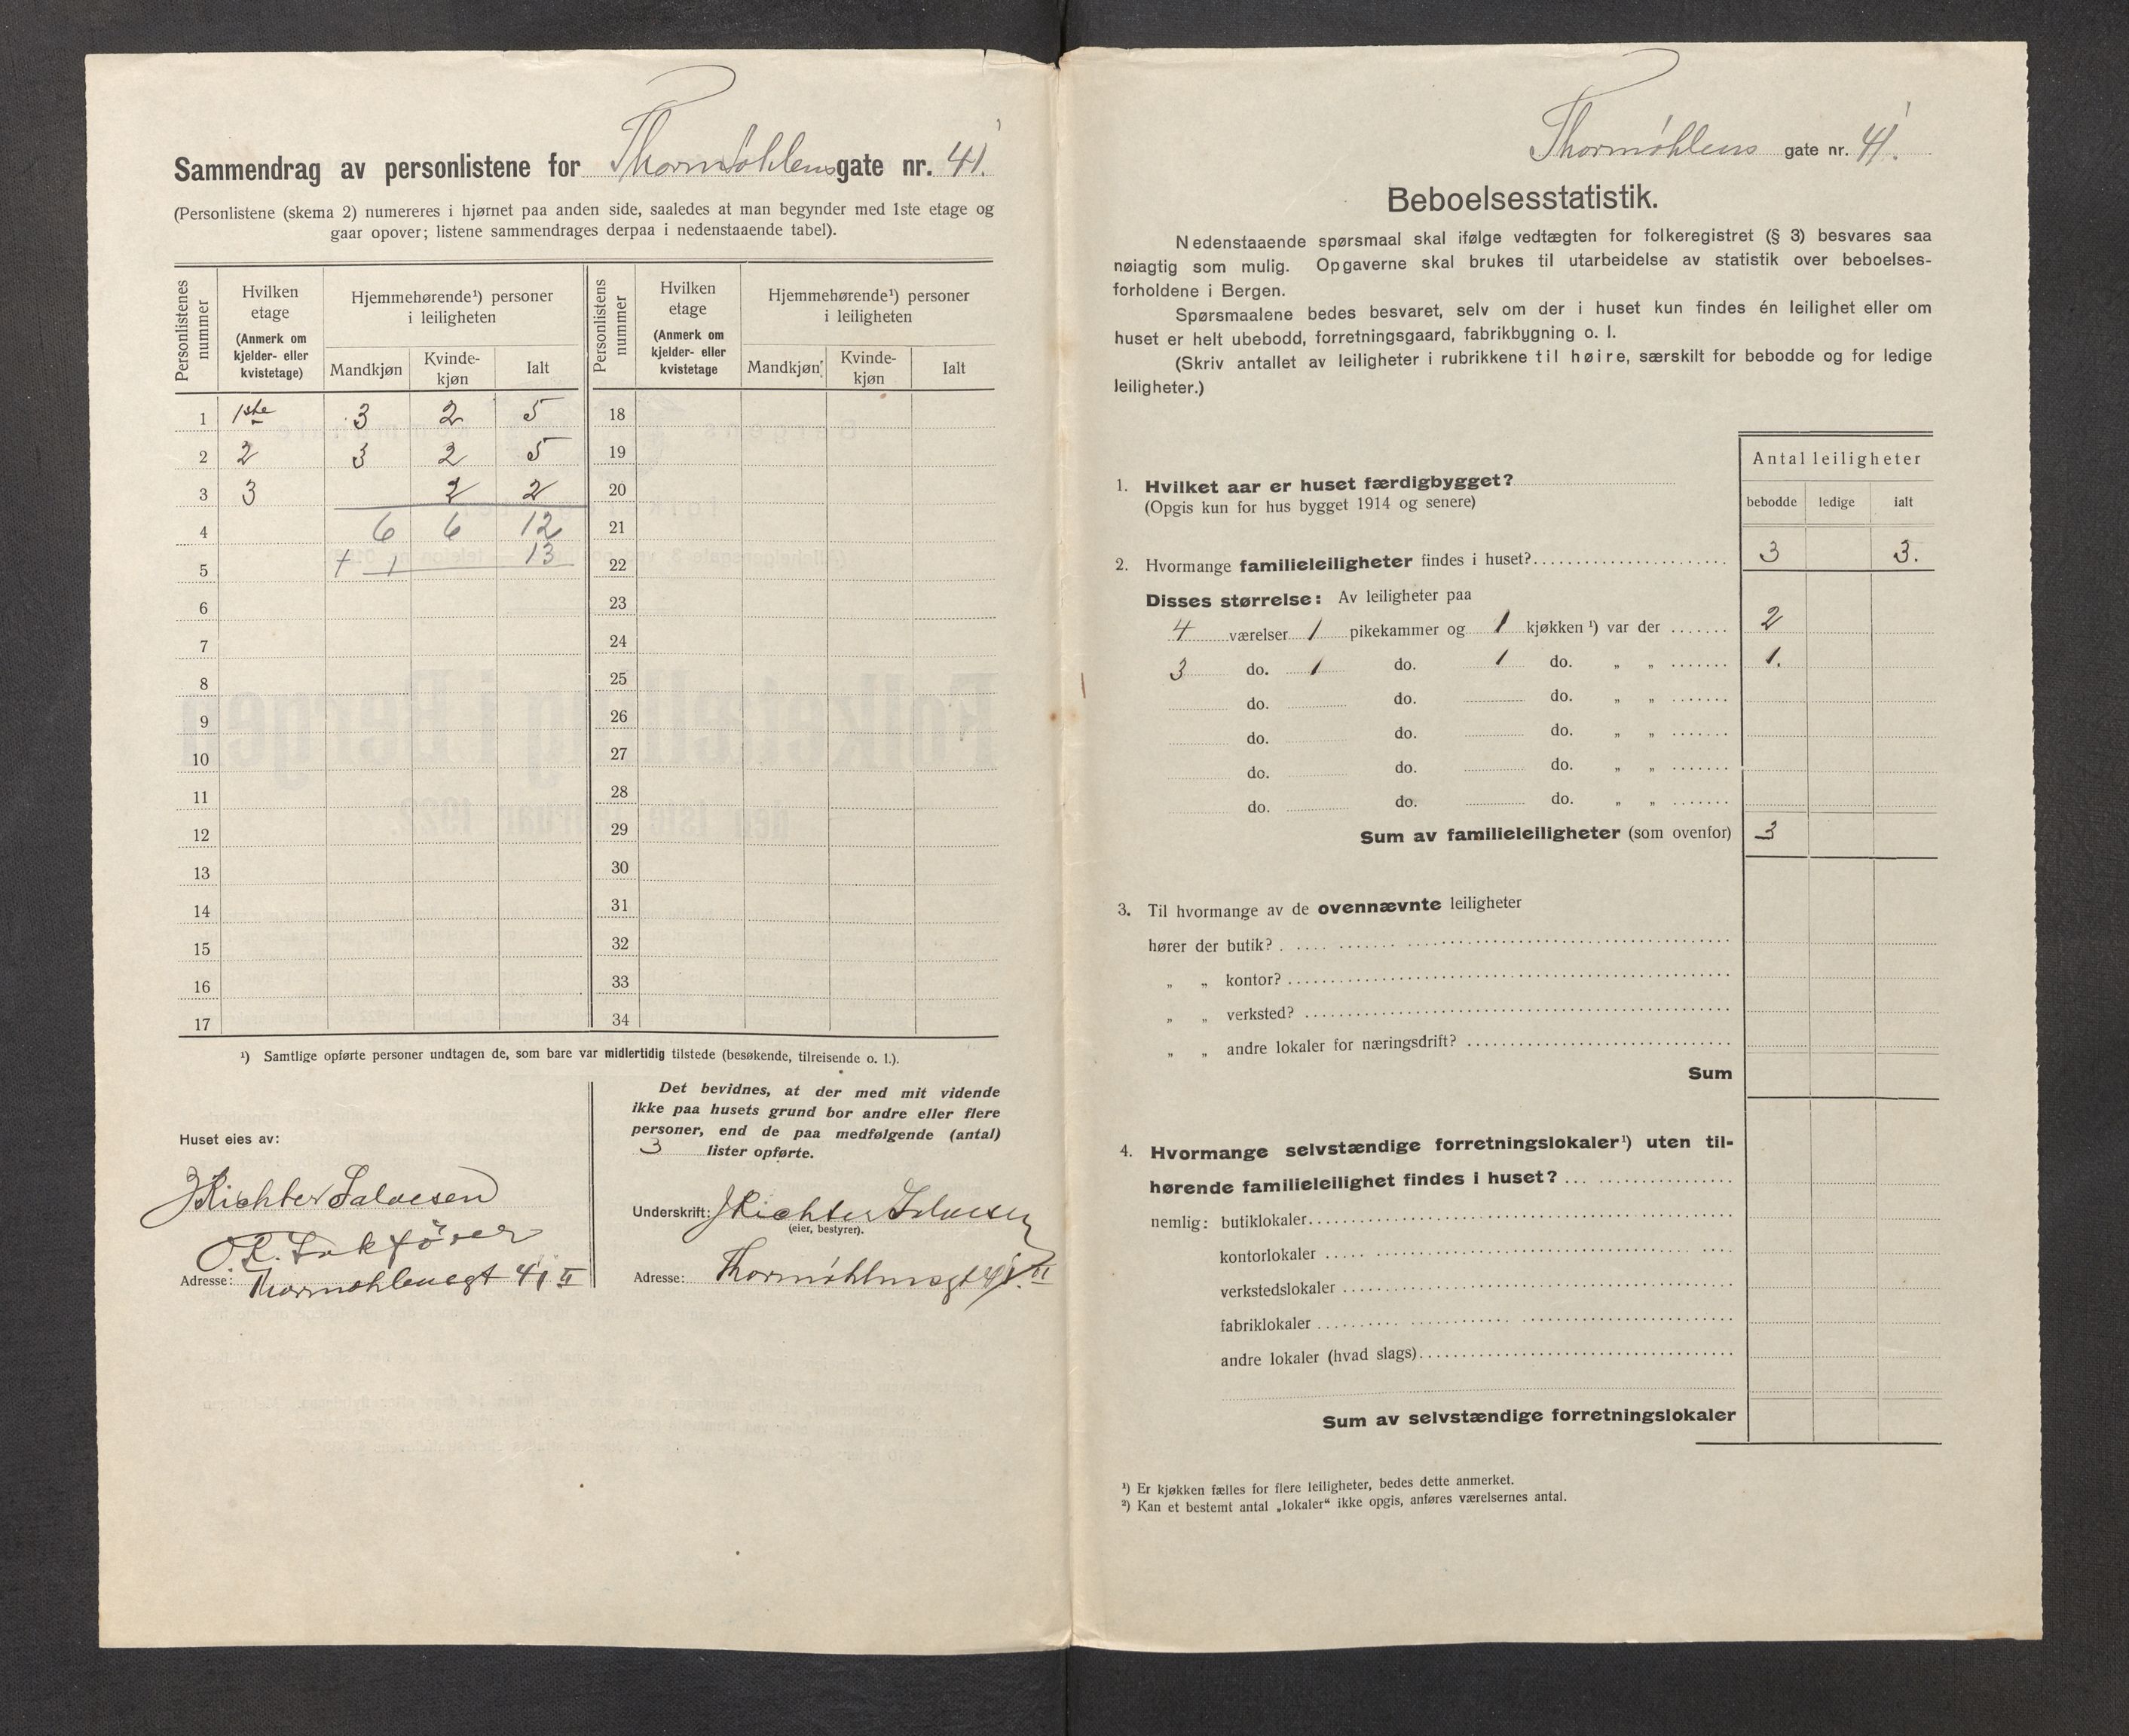 Sammendrag av personlistene for Thormøhlens gate nr. 41.
(Personlistene (skema 2) numereres i hjørnet paa anden side, saaledes at man begynder med 1ste etage og
gaar opover; listene sammendrages derpaa i nedenstaaende tabel).
Personlistenes nummer
Hvilken etage (Anmerk om kjelder- eller kvistetage)
Hjemmehørende¹) personer i leiligheten
Mandkjøn Kvinde-kjøn Ialt
Personlistens nummer
Hvilken etage (Anmerk om kjelder- eller kvistetage
Hjemmehørende¹) personer i leiligheten
Mandkjøn Kvinde-kjøn Ialt
1 1ste 3 2 5 18
2 2 3 2 5 19
3 3 2 2 20
4 6 6 12 21
5 + 1 13 22
6 23
7 24
8 25
9 26
10 27
11 28
12 29
13 30
14 31
15 32
16 33
17 34
¹) Samtlige opførte personer undtagen de, som bare var midlertidig tilstede (besøkende, tilreisende o. l.).
Huset eies av:
J Richter Salvesen
Adresse: Thormøhlensgt 41 II
Det bevidnes, at der med mit vidende
ikke paa husets grund bor andre eller flere
personer, end de paa medfølgende (antal)
3 lister opførte.
Underskrift: J Richter Salvesen
(eier, bestyrer).
Adresse: Thormøhlensgt 41. II
Thormøhlens gate nr. 41.
Beboelsesstatistik.
Nedenstaaende spørsmaal skal ifølge vedtægten for folkeregistret (§ 3) besvares saa
nøiagtig som mulig. Opgaverne skal brukes til utarbeidelse av statistik over beboelses-
forholdene i Bergen.
Spørsmaalene bedes besvaret, selv om der i huset kun findes én leilighet eller om
huset er helt ubebodd, forretningsgaard, fabrikbygning o. l.
(Skriv antallet av leiligheter i rubrikkene til høire, særskilt for bebodde og for ledige
leiligheter.)
Antal leiligheter
bebodde ledige ialt
1. Hvilket aar er huset færdigbygget?
(Opgis kun for hus bygget 1914 og senere)
2. Hvormange familieleiligheter findes i huset? 3 3.
Disses størrelse: Av leiligheter paa
4 værelser 1 pikekammer og 1 kjøkken ¹) var der 2
3 do. 1 do. 1 do. „ „ 1.
do. do. do. „ „
do. do. do. „ „
do. do. do. „ „
do. do. do. „ „
Sum av familieleiligheter (som ovenfor) 3
3. Til hvormange av de ovennævnte leiligheter
hører der butik?
„ „ kontor?
„ „ verksted?
„ „ andre lokaler for næringsdrift?
Sum
4. Hvormange selvstændige forretningslokaler¹) uten til-
hørende familieleilighet findes i huset?
nemlig: butiklokaler
kontorlokaler
verkstedslokaler
fabriklokaler
andre lokaler (hvad slags)
Sum av selvstændige forretningslokaler
¹) Er kjøkken fælles for flere leiligheter, bedes dette anmerket.
²) Kan et bestemt antal „lokaler“ ikke opgis, anføres værelsernes antal.